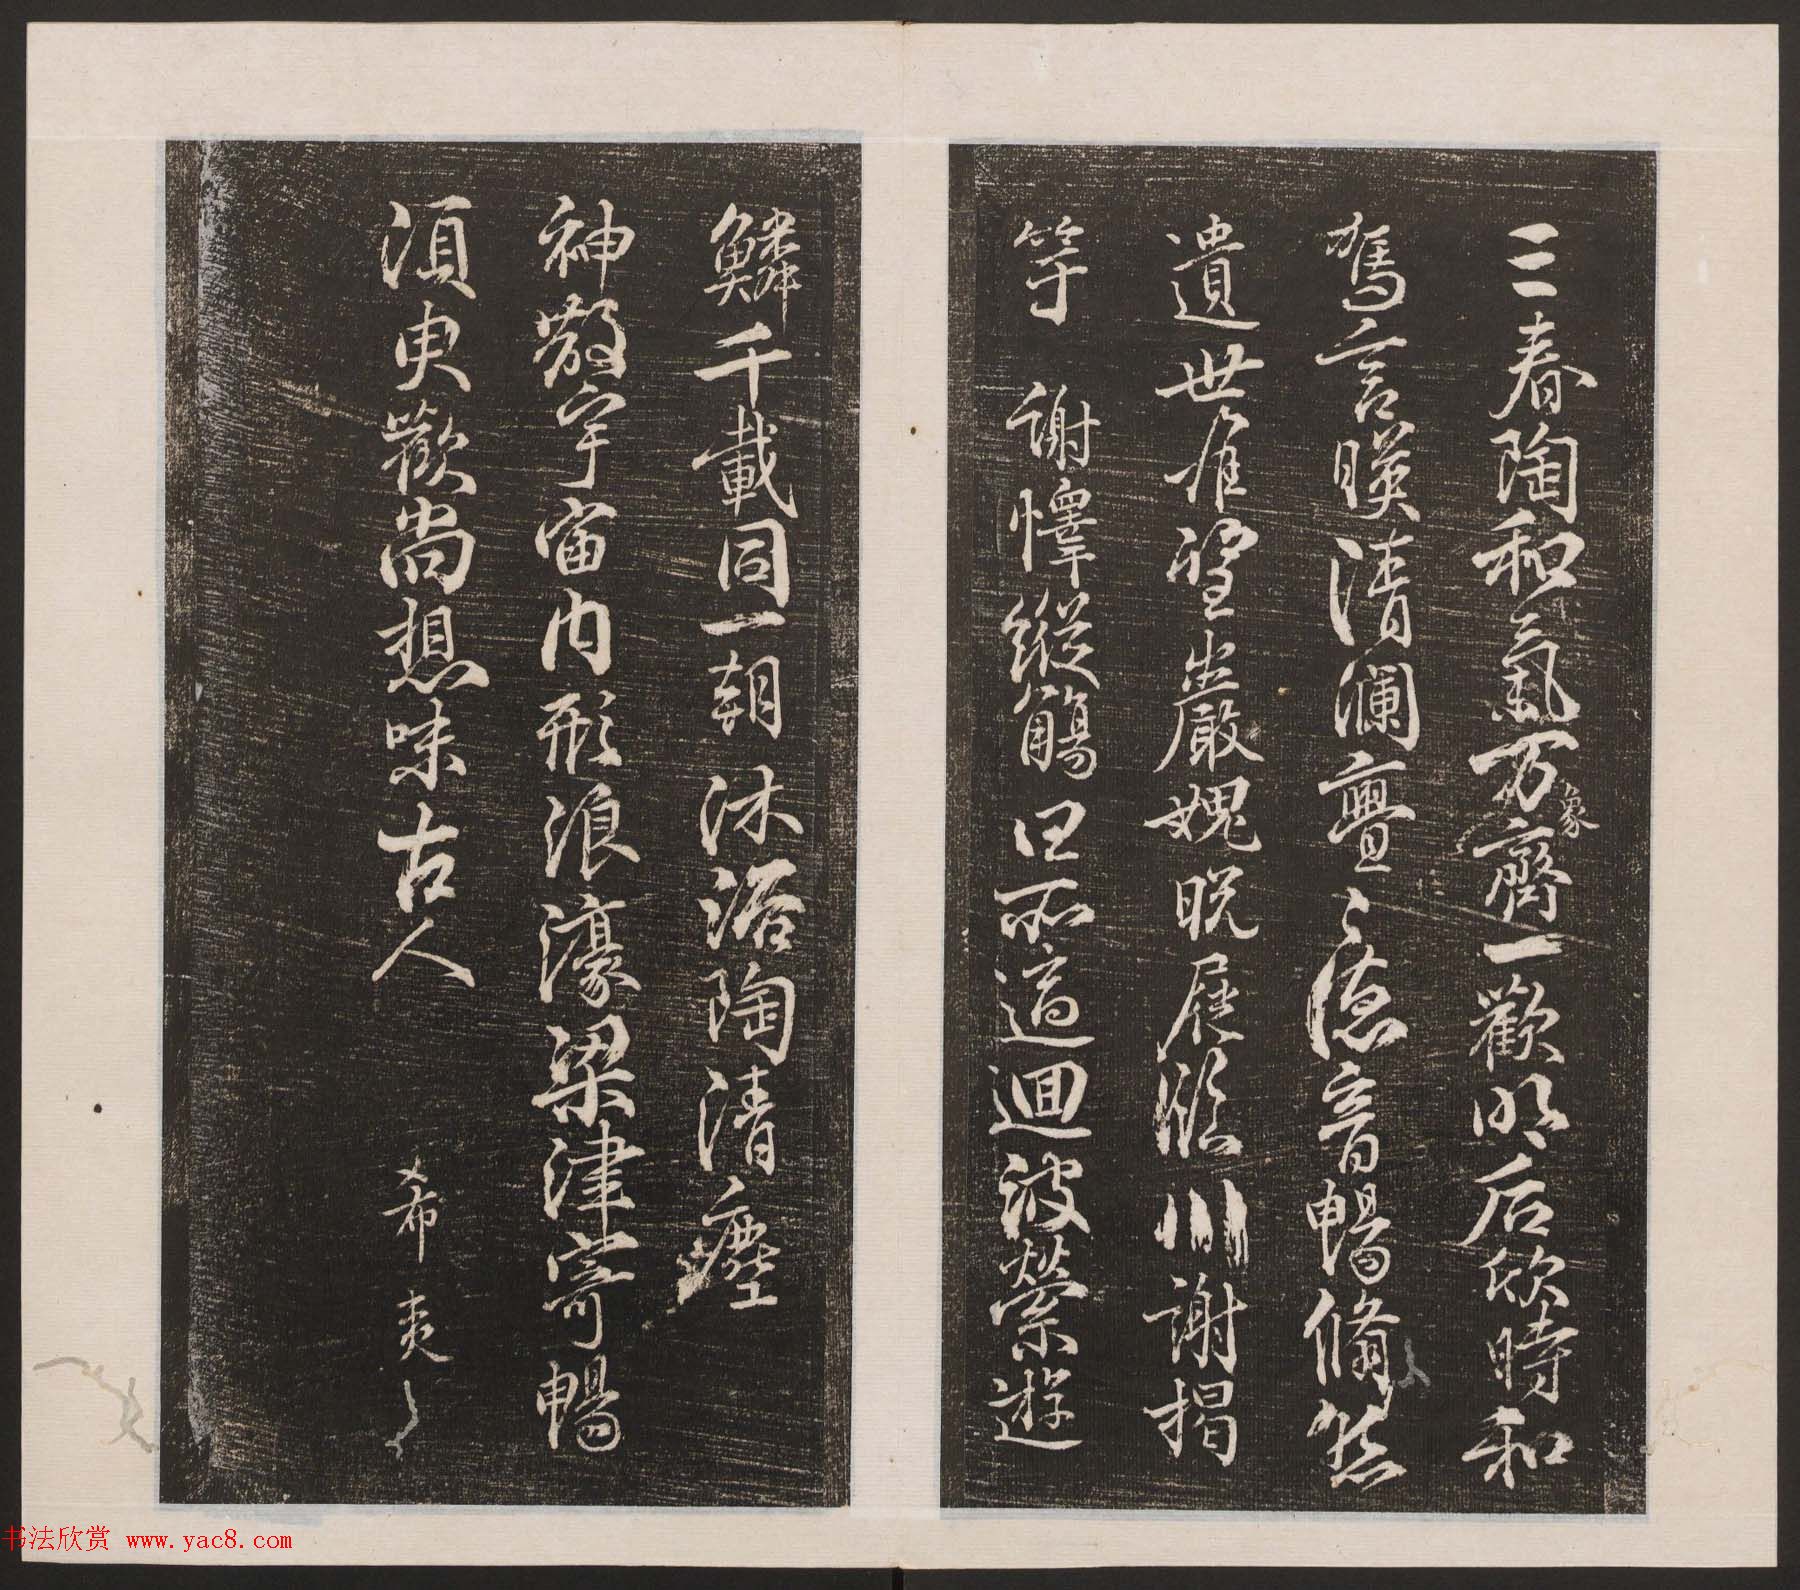 三春陶和氣万象齊一歡明后欣時和
駕言暎清瀾亹〻德音暢脩然
遺世難望巖愧脫屣臨川謝揭
竿 謝懌 縱觴任所適迴波縈遊
鱗千載同一朝沐浴陶清塵
神散宇宙內形浪濠梁津寄暢
須臾歡尚想味古人
希夷
书法欣赏 www.yac8.com